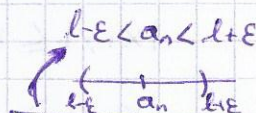 l-ε < aₙ < l+ε
l-ε aₙ l+ε